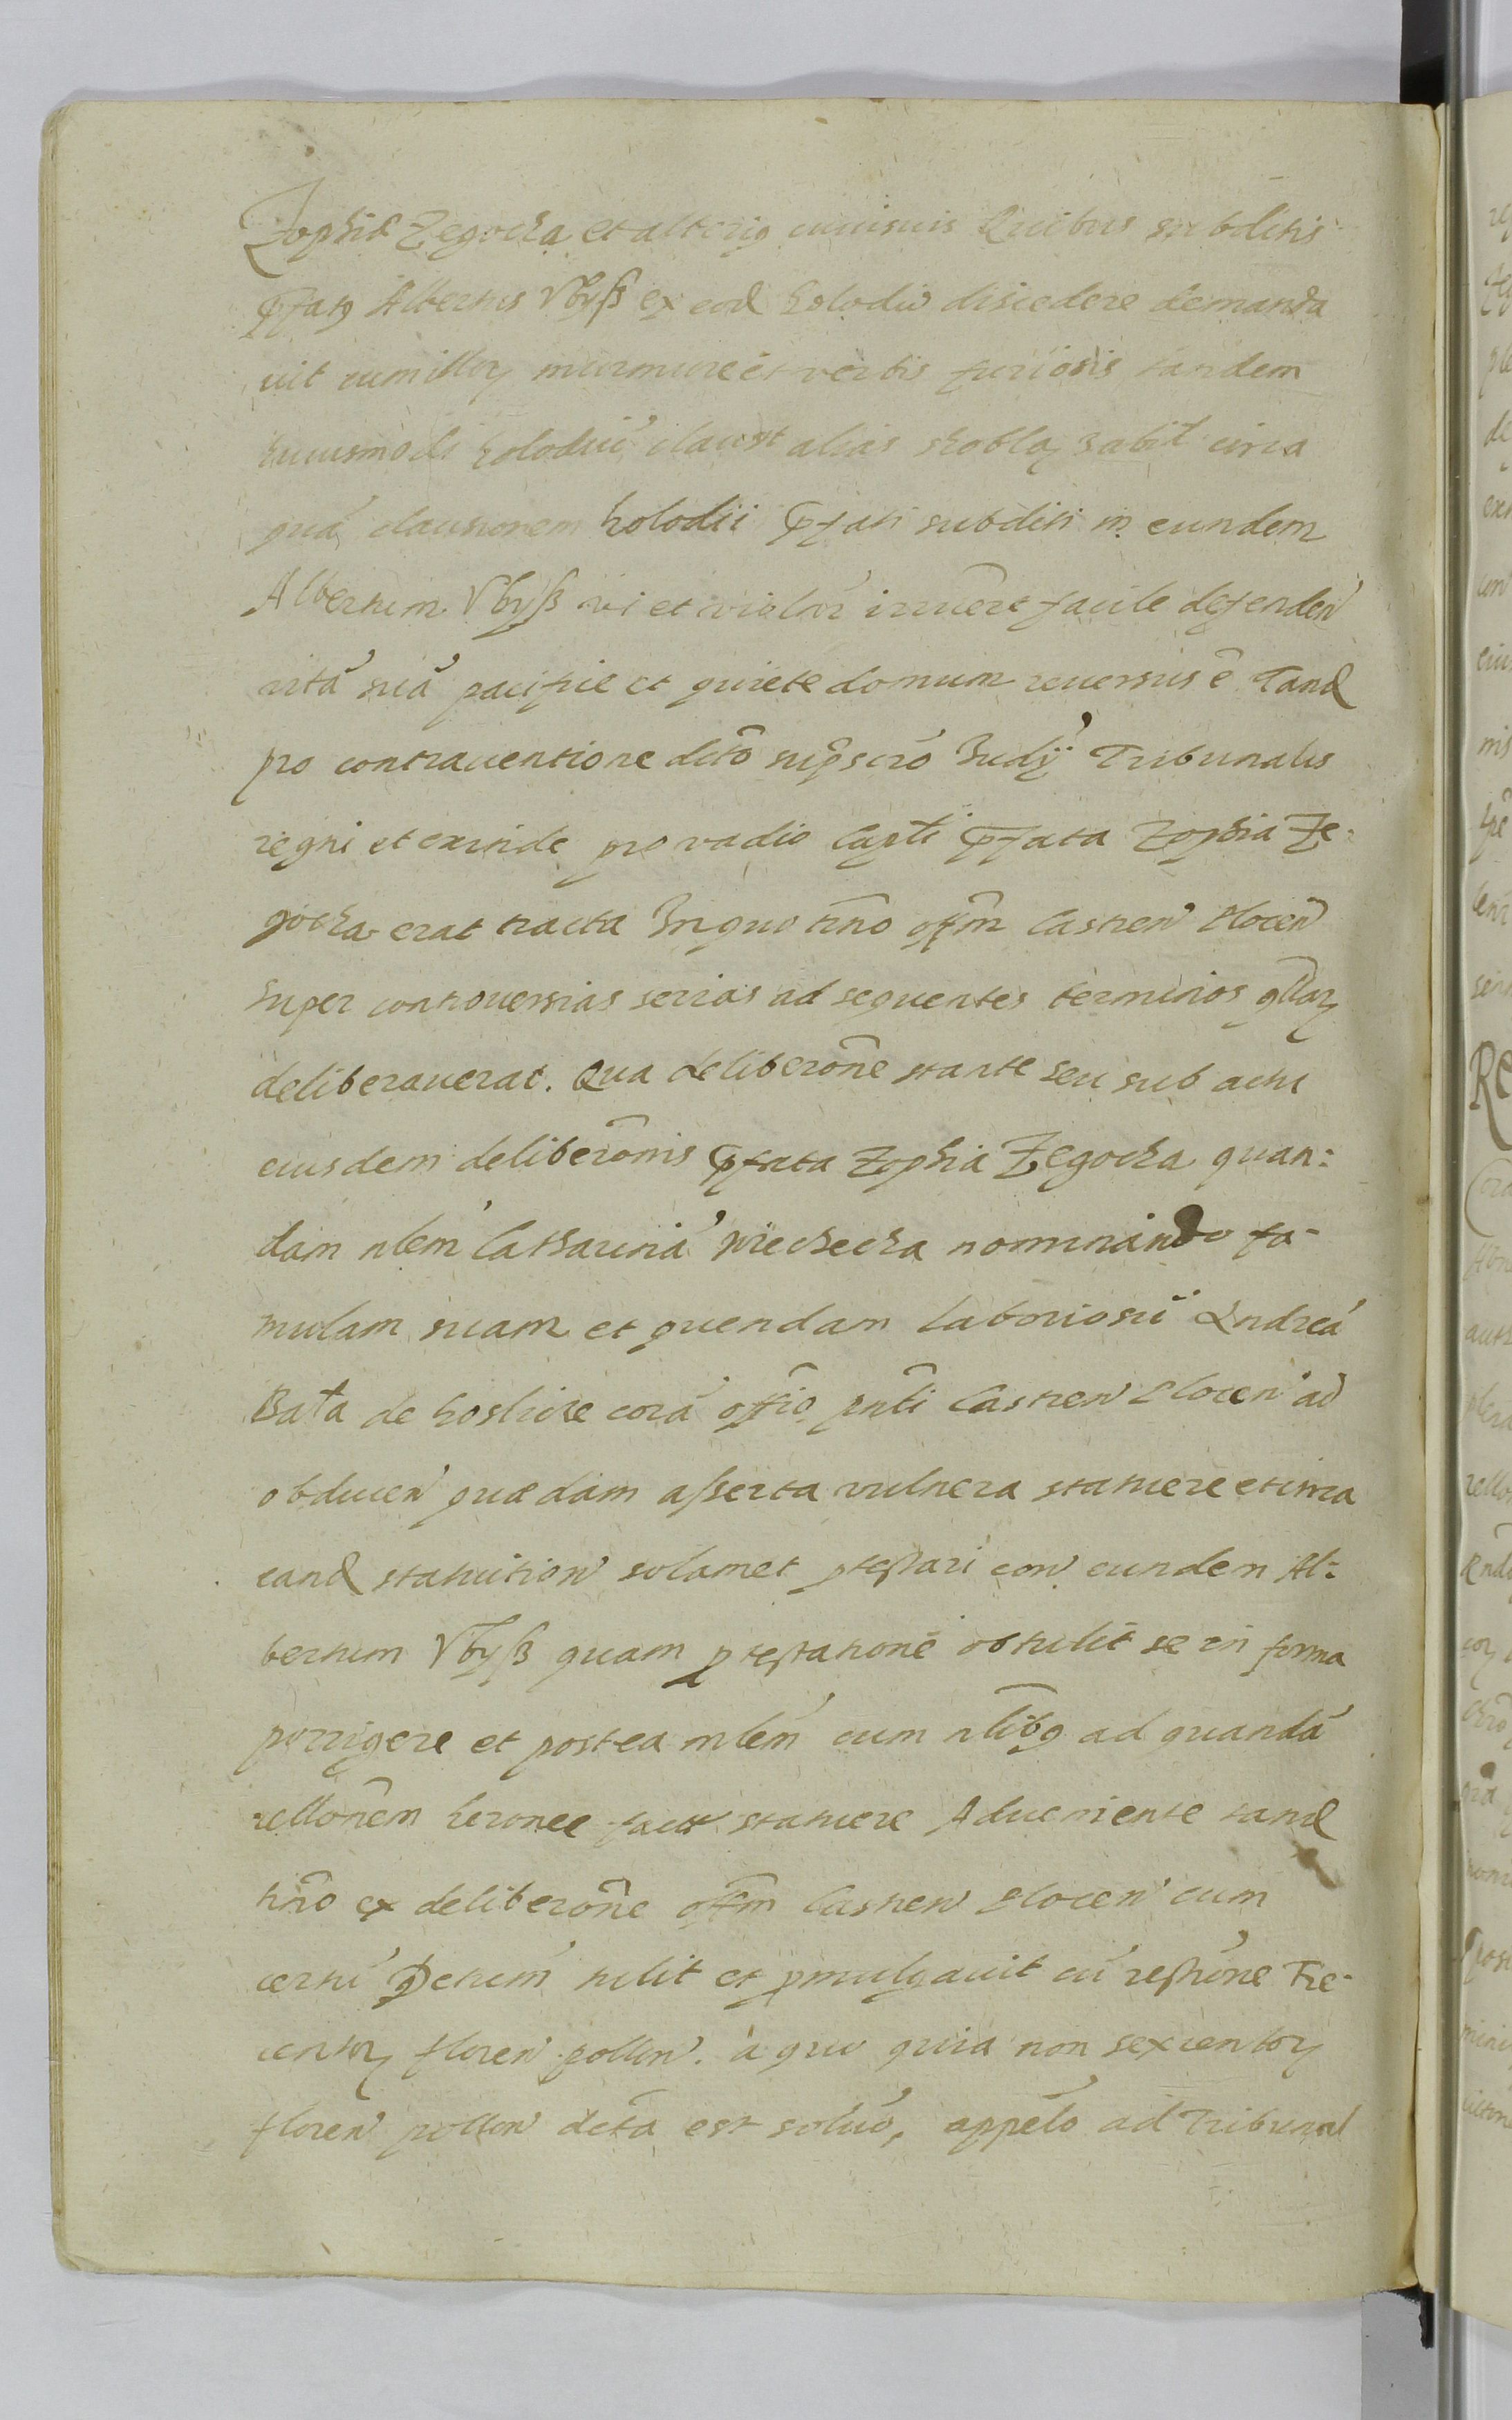 Zophiæ Zegocka et alterig cuiusuis Quibus subditis
pfatg Albertus Vbyß ex eod holodio discedere demanda
uit cum illor murmure et verbis furiosis tandem
huiusmodi holodiu claust alias skoblą zabił circa
quá clausionem holodii pfati subditi in eundem
Albertum Vbyß vi et violnr irruere facile defenden
vitá suá pacifice et quiete domum reuersus e Tand
pro contrauentione dcto supscro Iudÿ Tribunalis
regni et exinde pro vadio Capti pfata Zophia Ze-
gocka erat tracta In quo tmno offm Castren Plocen
super controuersias serias ad sequentes terminos qrllar
deliberauerat. Qua deliberone stante seu sub actu
eiusdem deliberonis pfata Zophia Zegocka quan:
dam nlem Catharina Wiechecka nominando fa-
mulam suam et quendam laboriosu Andreá
Bata de coram offio pnti Castren Plocen ad
obducen quædam aßerta vulnera statuere et circa
eand statuition solamet ptestari con eundem Al:
bertum Vbyß quam ptestationé obtulit se in forma
porrigere et postea mlem cum nlibg ad quandá
rellonem statuere Adueniente tand
tmno ex deliberone offm Castren Plocen cum
certu Decretum tulit et pmulgauit cu restne Tre-
centor floren pollon. a quo quia non sexcentor
floren pollon dcta est soluo, appelo ad Tribunal